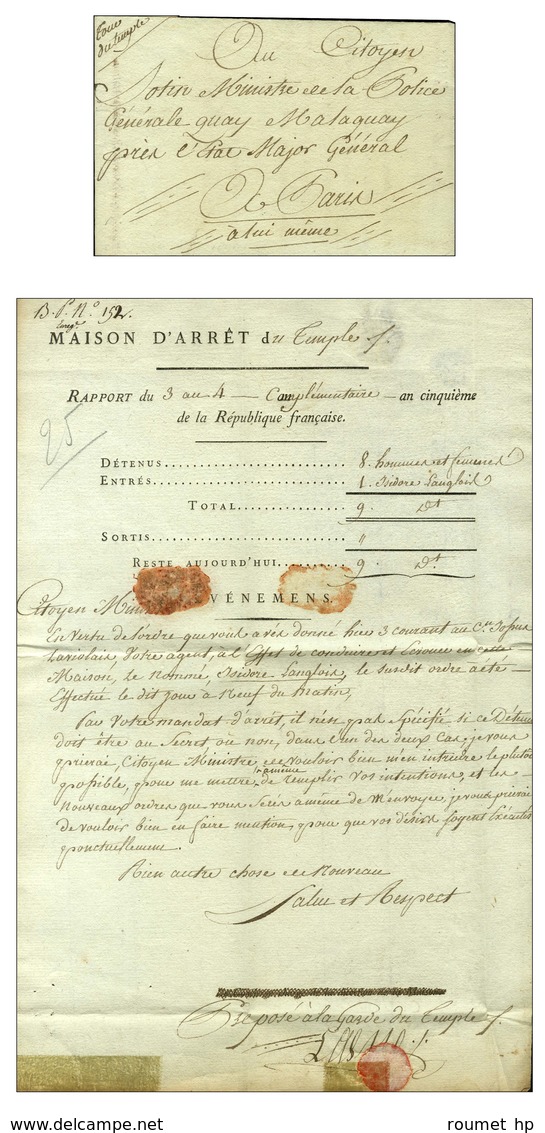 Tour
du temple
Au Citoyen
Sotin Ministre de la Police
Générale quay Malaquay
près l'Etat Major Général
A Paris
à lui même
B. Pr. N.o 152.
MAISON D'ARRÊT du Temple
RAPPORT du 3 au 4 — Complémentaire — an cinquième
de la République française.
25
DÉTENUS........ 8. hommes et femmes
ENTRÉS........ 1. Isidore Langlois
TOTAL........ 9. Dt
SORTIS........ "
RESTE AUJOURD'HUI........ 9. Dt
ÉVÉNEMENS.
Citoyen Ministre
En Vertu de l'ordre que vous avés donné hier 3 courant au Cen
Laviolais, Votre agent, à l'Effet de conduire et Ecrouer en cette
Maison, le nommé, Isidore Langlois, le susdit ordre a ete
Effectué le dit jour à Neuf du matin,
Par Votre mandat d'arrêt, il n'est pas Spécifié si ce Détenu
doit être au Secret, ou non, dans l'un des deux cas, je vous
prierai, Citoyen Ministre, de vouloir bien m'en intruire le plutot
possible, pour me mettre a même de remplir vos intentions, et les
Nouveaux ordres que vous serés amene de m'envoyer, je vous prierai
de vouloir bien en faire mention, pour que vos désirs soyent Exécutés
ponctuellement.
Rien autre chose de Nouveau
Salut et Respect
Préposé à la Garde du Temple
Lasne
roumet hp